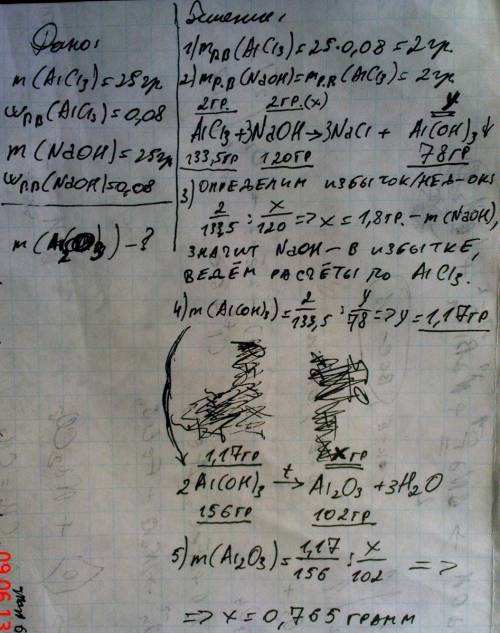 Дано:
m(AlCl₃)=25гр.
ωрв(AlCl₃)=0,08
m(NaOH)=25гр
ωрв(NaOH)=0,08
m(Al₂O₃)-?
Решение:
1) mрв(AlCl₃)=25·0,08=2гр.
2) mр.в(NaOH)=mр.в(AlCl₃)=2гр.
2гр. 2гр.(x) y
AlCl₃+3NaOH→3NaCl + Al(OH)₃↓
133,5гр 120гр 78гр
3) ОПРЕДЕЛИМ ИЗБЫТОК/НЕД-ОК:
2/133,5 : x/120 => x=1,8гр.-m(NaOH),
ЗНАЧИТ NaOH-В ИЗБЫТКЕ,
ВЕДЁМ РАСЧЁТЫ ПО AlCl₃.
4) m(Al(OH)₃)=2/133,5 : y/78 => y=1,17гр
1,17гр xгр
2Al(OH)₃ t→ Al₂O₃ +3H₂O
156гр 102гр
5) m(Al₂O₃)=1,17/156 : x/102 =>
=> x=0,765 грамм
09.06.13